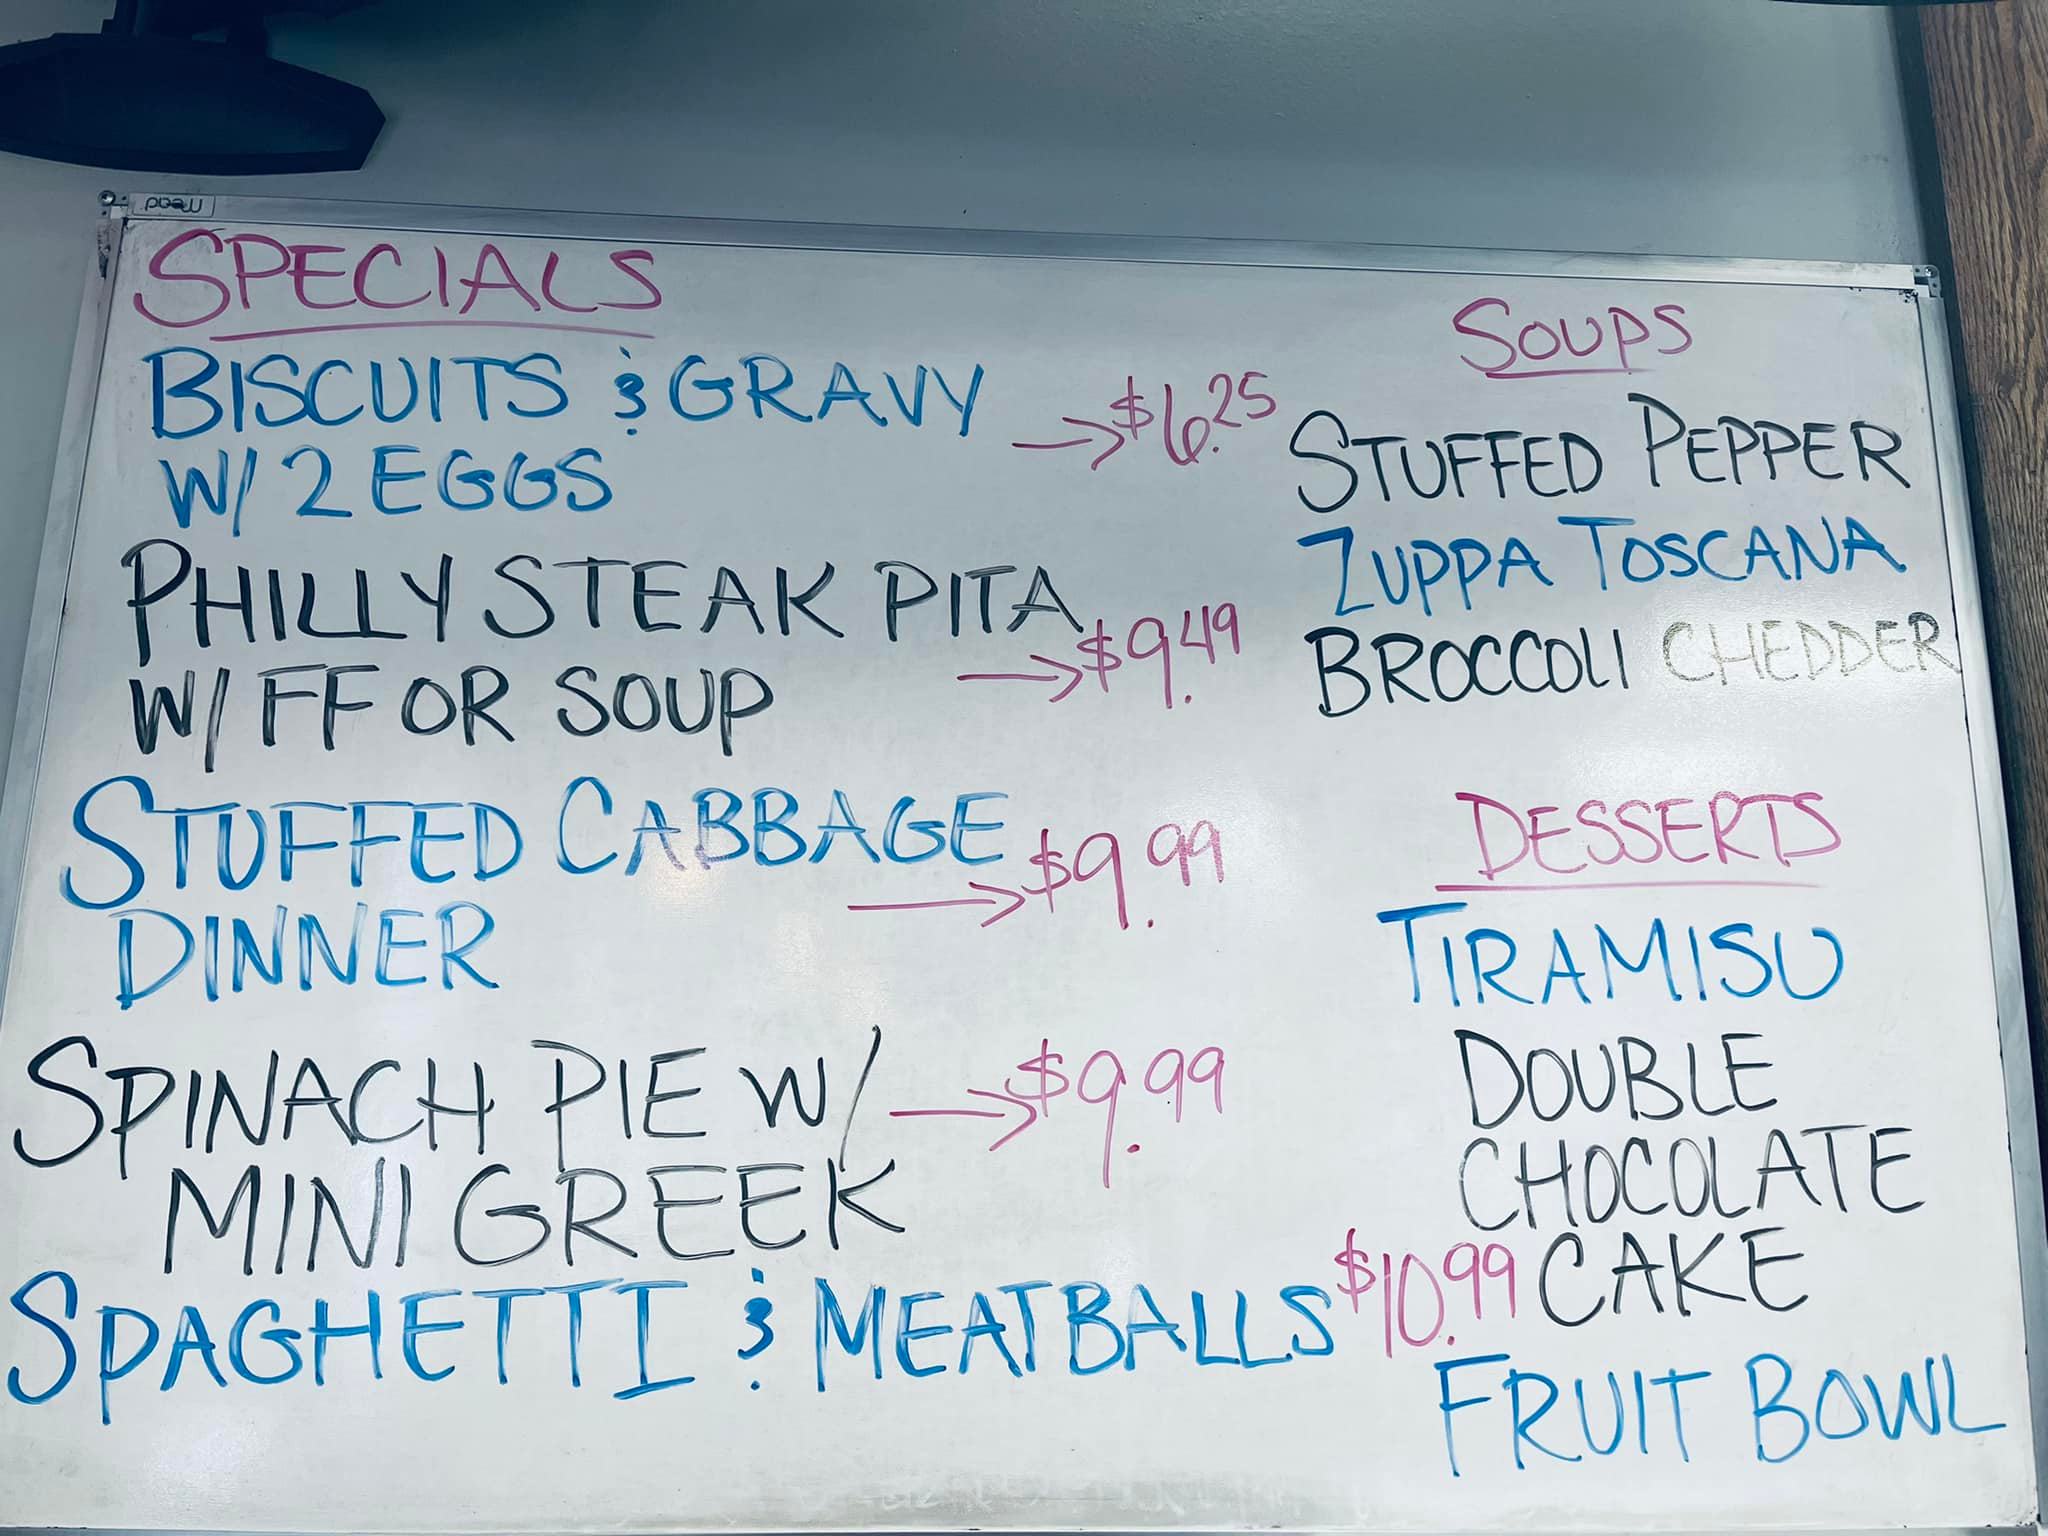 Mead
SPECIALS
BISCUITS & GRAVY
W/ 2 EGGS
→ $6.25
PHILLY STEAK PITA
W/ FF OR SOUP
→ $9.49
STUFFED CABBAGE
DINNER
→ $9.99
SPINACH PIE W/
MINI GREEK
→ $9.99
SPAGHETTI & MEATBALLS $10.99
SOUPS
STUFFED PEPPER
ZUPPA TOSCANA
BROCCOLI CHEDDER
DESSERTS
TIRAMISU
DOUBLE
CHOCOLATE
CAKE
FRUIT BOWL